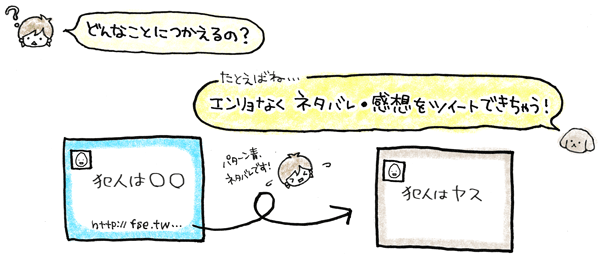 ?
どんなことにつかえるの？
たとえばね…
エンリョなく ネタバレ・感想をツイートできちゃう！
犯人は○○
http://fse.tw…
パターン青、
ネタバレです！
犯人はヤス